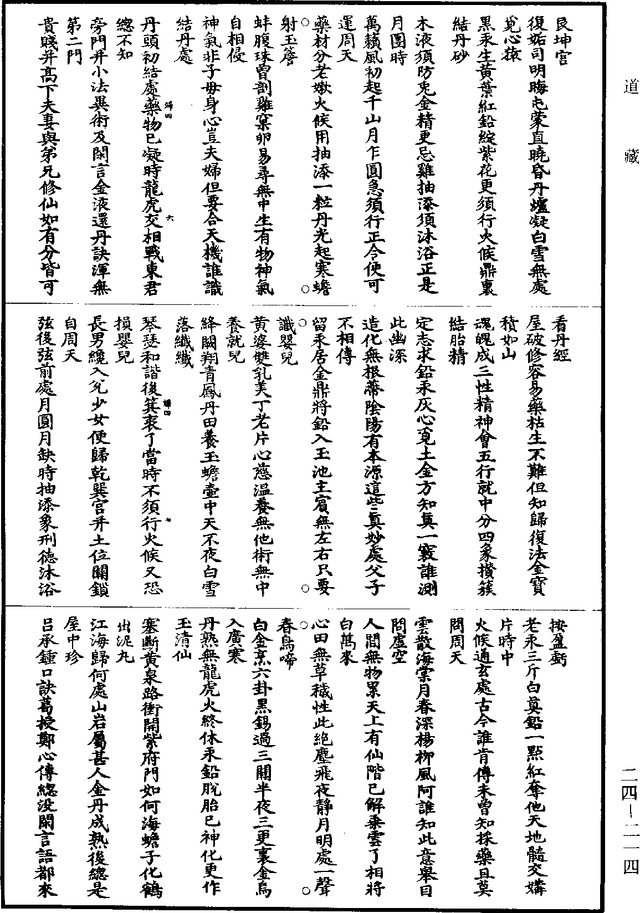 道藏
艮坤宮
復姤司明晦屯蒙直曉昏丹爐凝白雪無處
覓心猿
黑汞生黃葉紅鉛綻紫花更須行火候鼎裏
結丹砂
木液須防兎金精更忌雞抽添須沐浴正是
月圓時
萬籟風初起千山月乍圓急須行正令便可
運周天
藥材分老嫩火候用抽添一粒丹光起寒蟾
射玉簷
蚌腹珠曾剖雞窠卵易尋無中生有物神氣
自相侵
神氣非子母身心豈夫婦但要合天機誰識
結丹處
丹頭初結處藥物已凝時龍虎交相戰東君
總不知
旁門并小法異術及閑言金液還丹訣渾無
第二門
貴賤并高下夫妻與弟兄修仙如有分皆可
看丹經
屋破修容易藥枯生不難但知歸復法金寶
積如山
魂魄成三性精神會五行就中分四象攢簇
結胎精
定志求鉛汞灰心覓土金方知真一竅誰測
此幽深
造化無根蔕陰陽有本源這些真妙處父子
不相傳
留汞居金鼎將鉛入玉池主賓無左右只要
識嬰兒
黃婆雙乳美丁老片心慈溫養無他術無中
養就兒
絳闕翔青鳳丹田養玉蟾壺中天不夜白雪
落纖纖
琴瑟和諧後箕裘了當時不須行火候又恐
損嬰兒
長男纔入兊少女便歸乾巽宮并土位關鎖
自周天
弦後弦前處月圓月缺時抽添象刑德沐浴
按盈虧
老汞三斤白真鉛一點紅奪他天地髓交媾
片時中
火候通玄處古今誰肯傳未曾知採藥且莫
問周天
雲散海棠月春深楊柳風阿誰知此意舉目
問虛空
人間無物累天上有仙階已解乘雲了相將
白鶴來
心田無草穢性此絕塵飛夜靜月明處一聲
春鳥啼
白金烹六卦黑錫過三關半夜三更裏金烏
入廣寒
丹熟無龍虎火終休汞鉛脫胎已神化更作
玉清仙
塞斷黃泉路衝開紫府門如何海蟾子化鶴
出泥丸
江海歸何處山岩屬甚人金丹成熟後總是
屋中珍
呂承鍾口訣葛授鄭心傳總没閑言語都來
二四—二一四